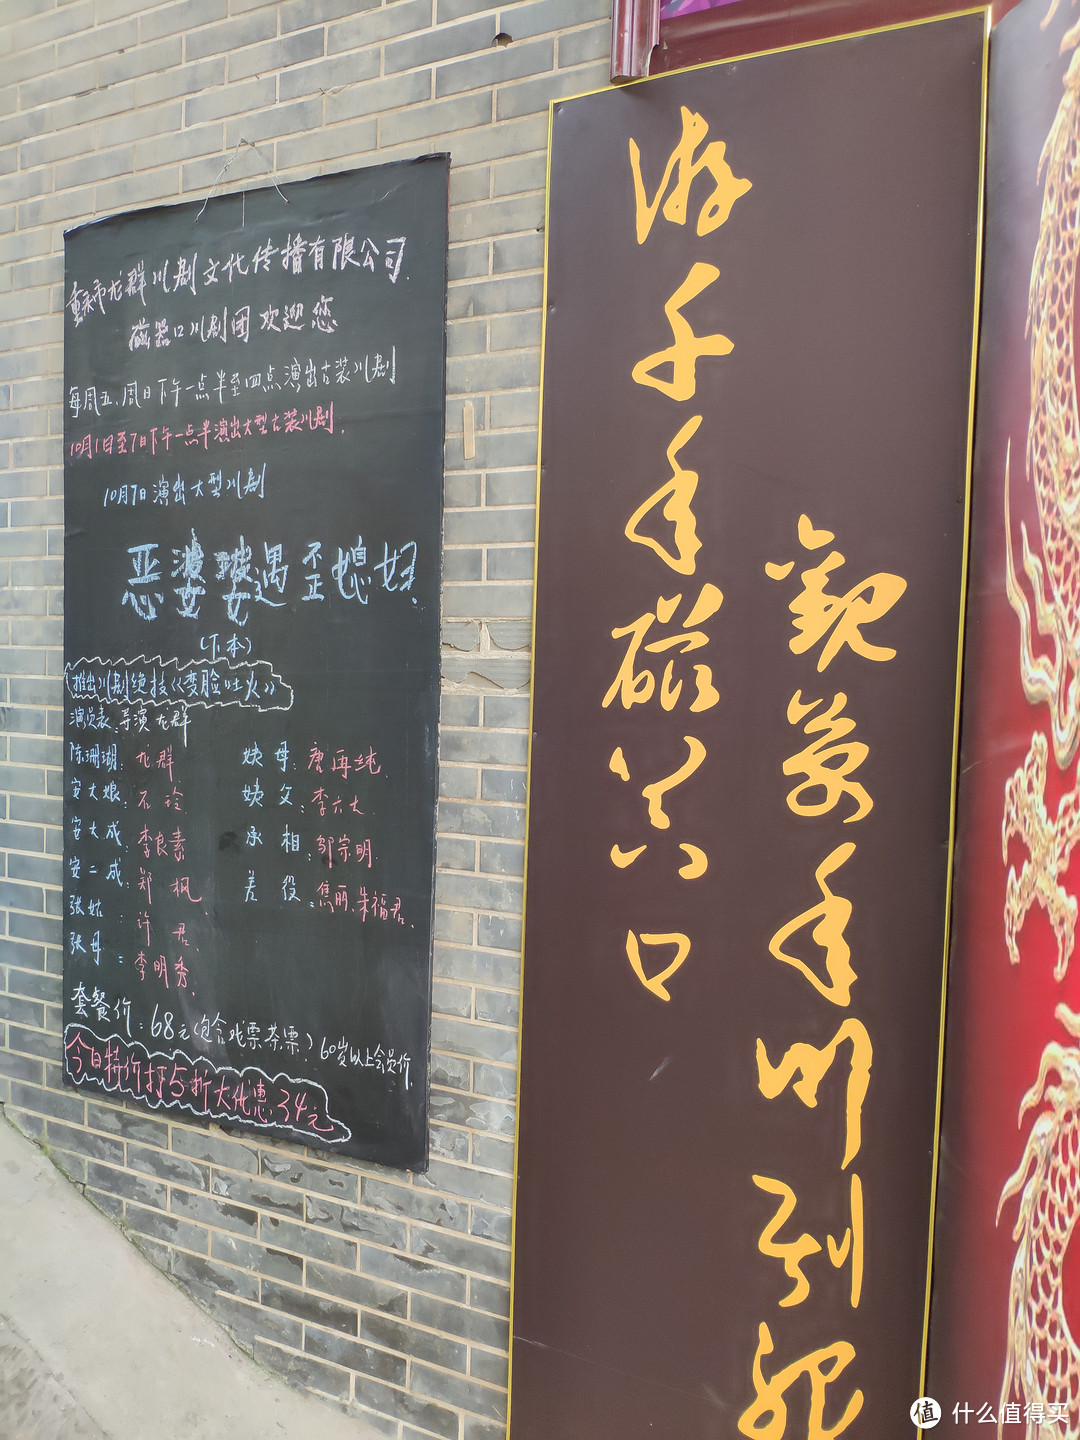 重庆市龙群川剧文化传播有限公司
磁器口川剧团欢迎您
每周五、周日下午一点半至四点演出古装川剧
10月1日至7日下午一点半演出大型古装川剧.
10月7日演出大型川剧
恶婆婆遇歪媳妇.
(下本)
推出川剧绝技《变脸吐火》
演员表:导演龙群
陈珊瑚:龙群 姨母:唐再纯
安大娘:石玲 姨父:李六大
安大成:李良素 承相:邹宗明
安二成:郑枫 差役:焦丽、朱福君.
张姑:许君
张母:李明秀
套餐价:68元(包含戏票茶票)60岁以上会员价
今日特价打5折大优惠34元
游千年磁器口
观百年川剧
什么值得买